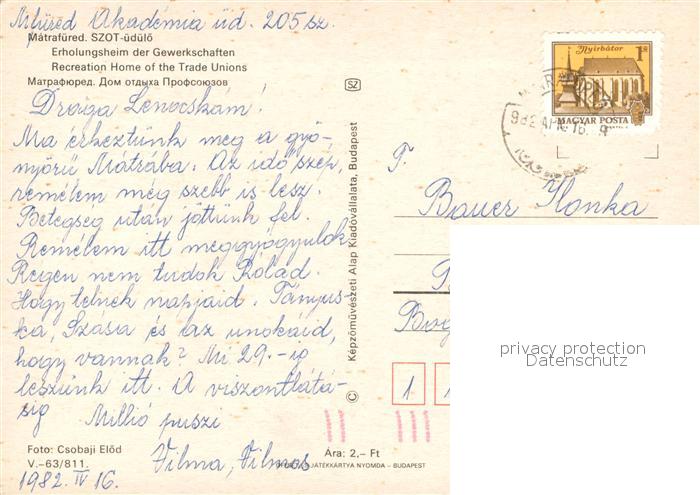 Mfüred Akadémia üd. 205 sz.
Mátrafüred. SZOT-üdülő
Erholungsheim der Gewerkschaften
Recreation Home of the Trade Unions
Матрафюред. Дом отдыха Профсоюзов
Drága Lencsokám!
Ma érkeztünk meg a gyö-
nyörű Mátrába. Az idő szép,
remélem még szebb is lesz.
Betegség után jöttünk fel.
Remélem itt meggyógyulok
Régen nem tudok Rólad.
Hogy telnek napjaid. Tányus-
ka, Szásia és az unokáid,
hogy vannak? Mi 29.-ig
leszünk itt. A viszontlátá-
sig Millió puszi
Vilma, Vilmos
1982. IV 16.
Foto: Csobaji Előd
V.–63/811.
Ára: 2,– Ft
JÁTÉKKÁRTYA NYOMDA – BUDAPEST
© Képzőművészeti Alap Kiadóvállalata, Budapest
SZ
Nyírbátor
1 Ft
MAGYAR POSTA
982 APR. 16.
T.
Bauer Ilonka
B
Bog
1 1
privacy protection
Datenschutz